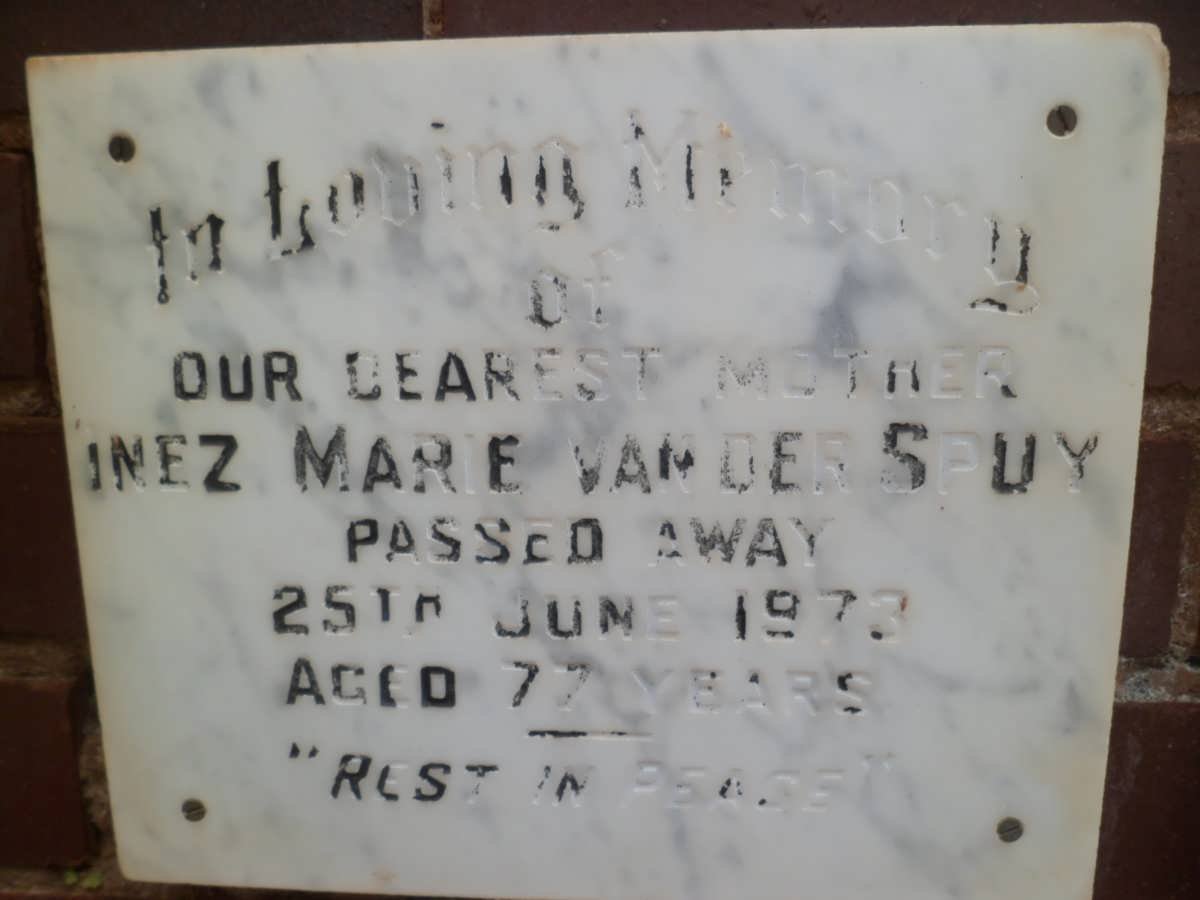 In Loving Memory
of
OUR DEAREST MOTHER
INEZ MARIE VAN DER SPUY
PASSED AWAY
25TH JUNE 1973
AGED 77 YEARS
"REST IN PEACE"